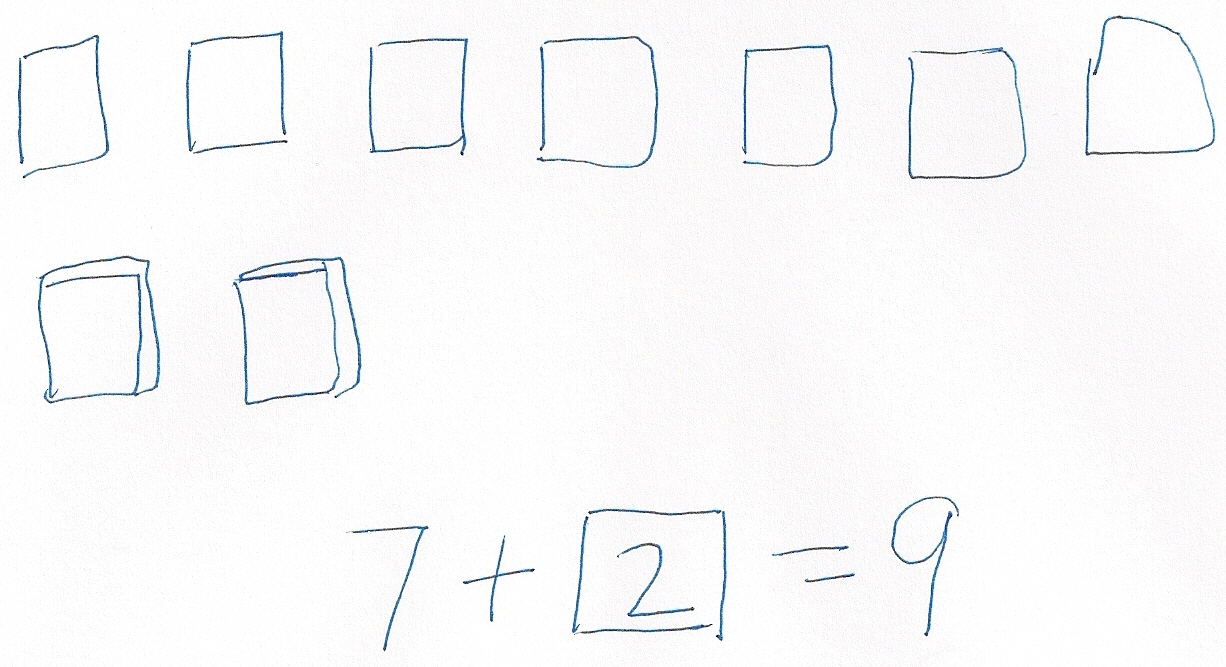 7 + 2 = 9